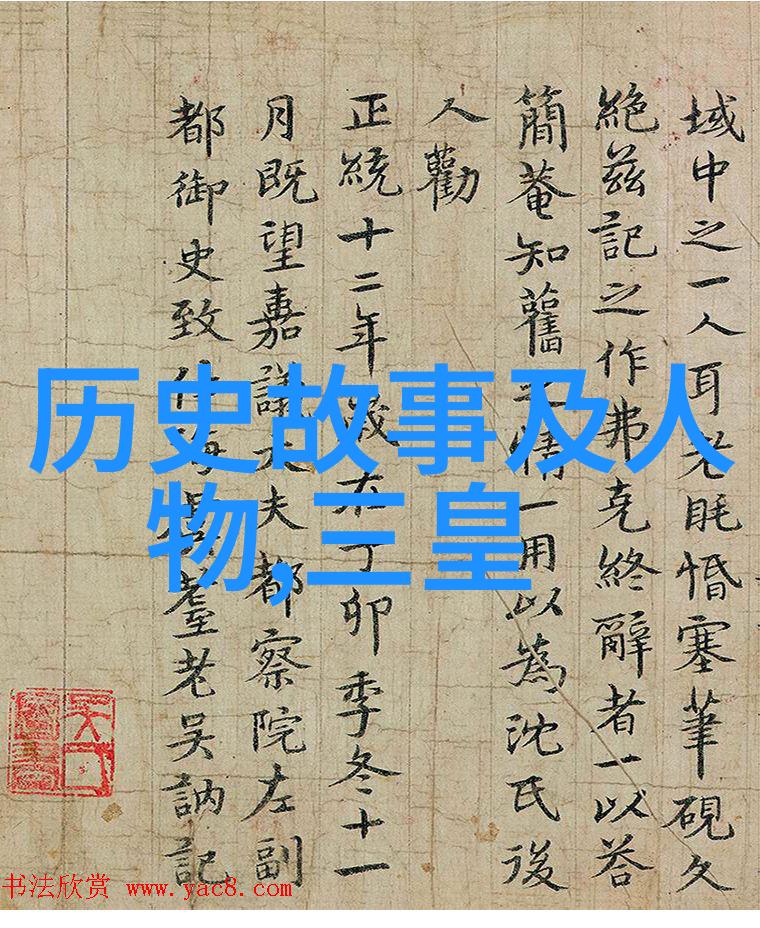 域中之一人耳老眊惛塞筆硯久
絶茲記之作弗克終辭者一以荅
簡菴知舊之情一用以為沈氏後
人勸
正統十二年歲在丁卯季冬十一
月既望嘉議大夫都察院左副
都御史致仕海虞耋老吳訥記
历史故事及人
物,三皇
书法欣赏 www.yac8.com